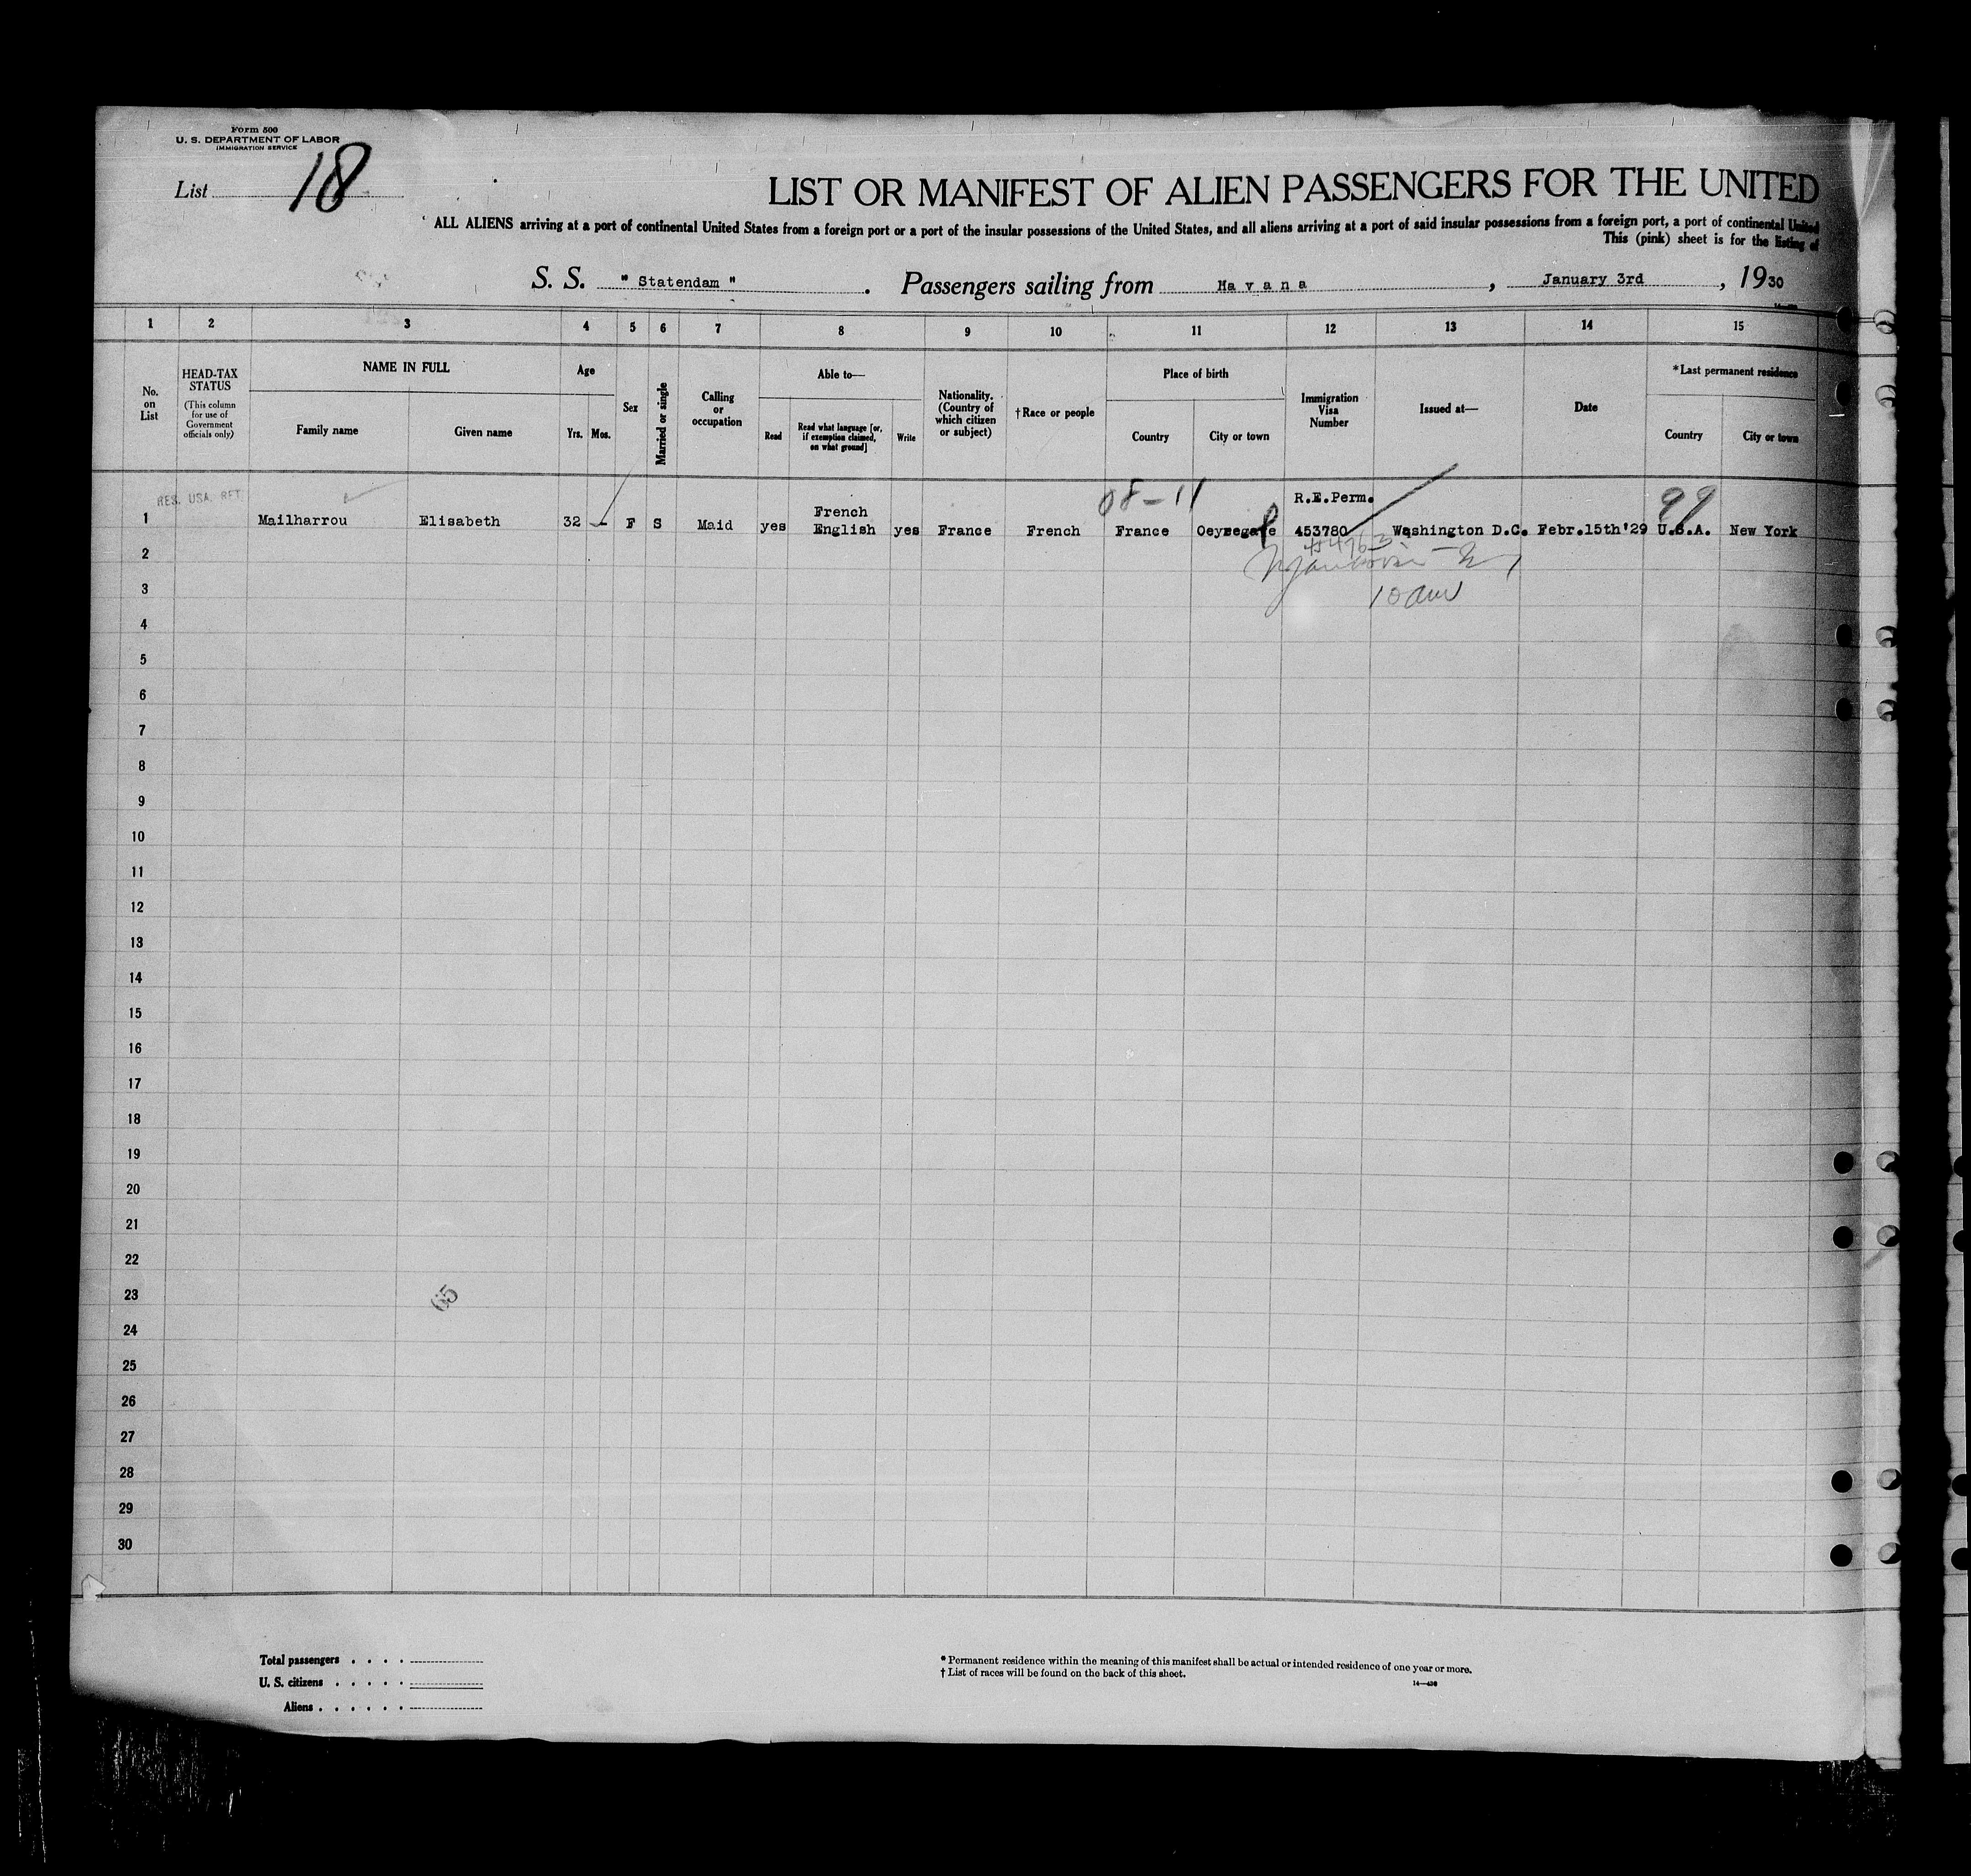 Form 500
U. S. DEPARTMENT OF LABOR
IMMIGRATION SERVICE
List 18
LIST OR MANIFEST OF ALIEN PASSENGERS FOR THE UNITED
ALL ALIENS arriving at a port of continental United States from a foreign port or a port of the insular possessions of the United States, and all aliens arriving at a port of said insular possessions from a foreign port, a port of continental United
This (pink) sheet is for the listing of
S. S. " Statendam " . Passengers sailing from Havana , January 3rd , 1930
1 2 3 4 5 6 7 8 9 10 11 12 13 14 15
No. on List
HEAD-TAX STATUS (This column for use of Government officials only)
NAME IN FULL
Family name Given name
Age
Yrs. Mos.
Sex
Married or single
Calling or occupation
Able to—
Read
Read what language [or, if exemption claimed, on what ground]
Write
Nationality. (Country of which citizen or subject)
†Race or people
Place of birth
Country City or town
Immigration Visa Number
Issued at—
Date
*Last permanent residence
Country City or town
RES. USA. RET.
08-11
R.E.Perm.
99
1 Mailharrou Elisabeth 32 - F S Maid yes French English yes France French France 453780 Washington D.C. Febr.15th'29 U.S.A. New York
2
10 am
3
4
5
6
7
8
9
10
11
12
13
14
15
16
17
18
19
20
21
22
23
65
24
25
26
27
28
29
30
Total passengers . . . .
U. S. citizens . . . . .
Aliens . . . . . .
* Permanent residence within the meaning of this manifest shall be actual or intended residence of one year or more.
† List of races will be found on the back of this sheet.